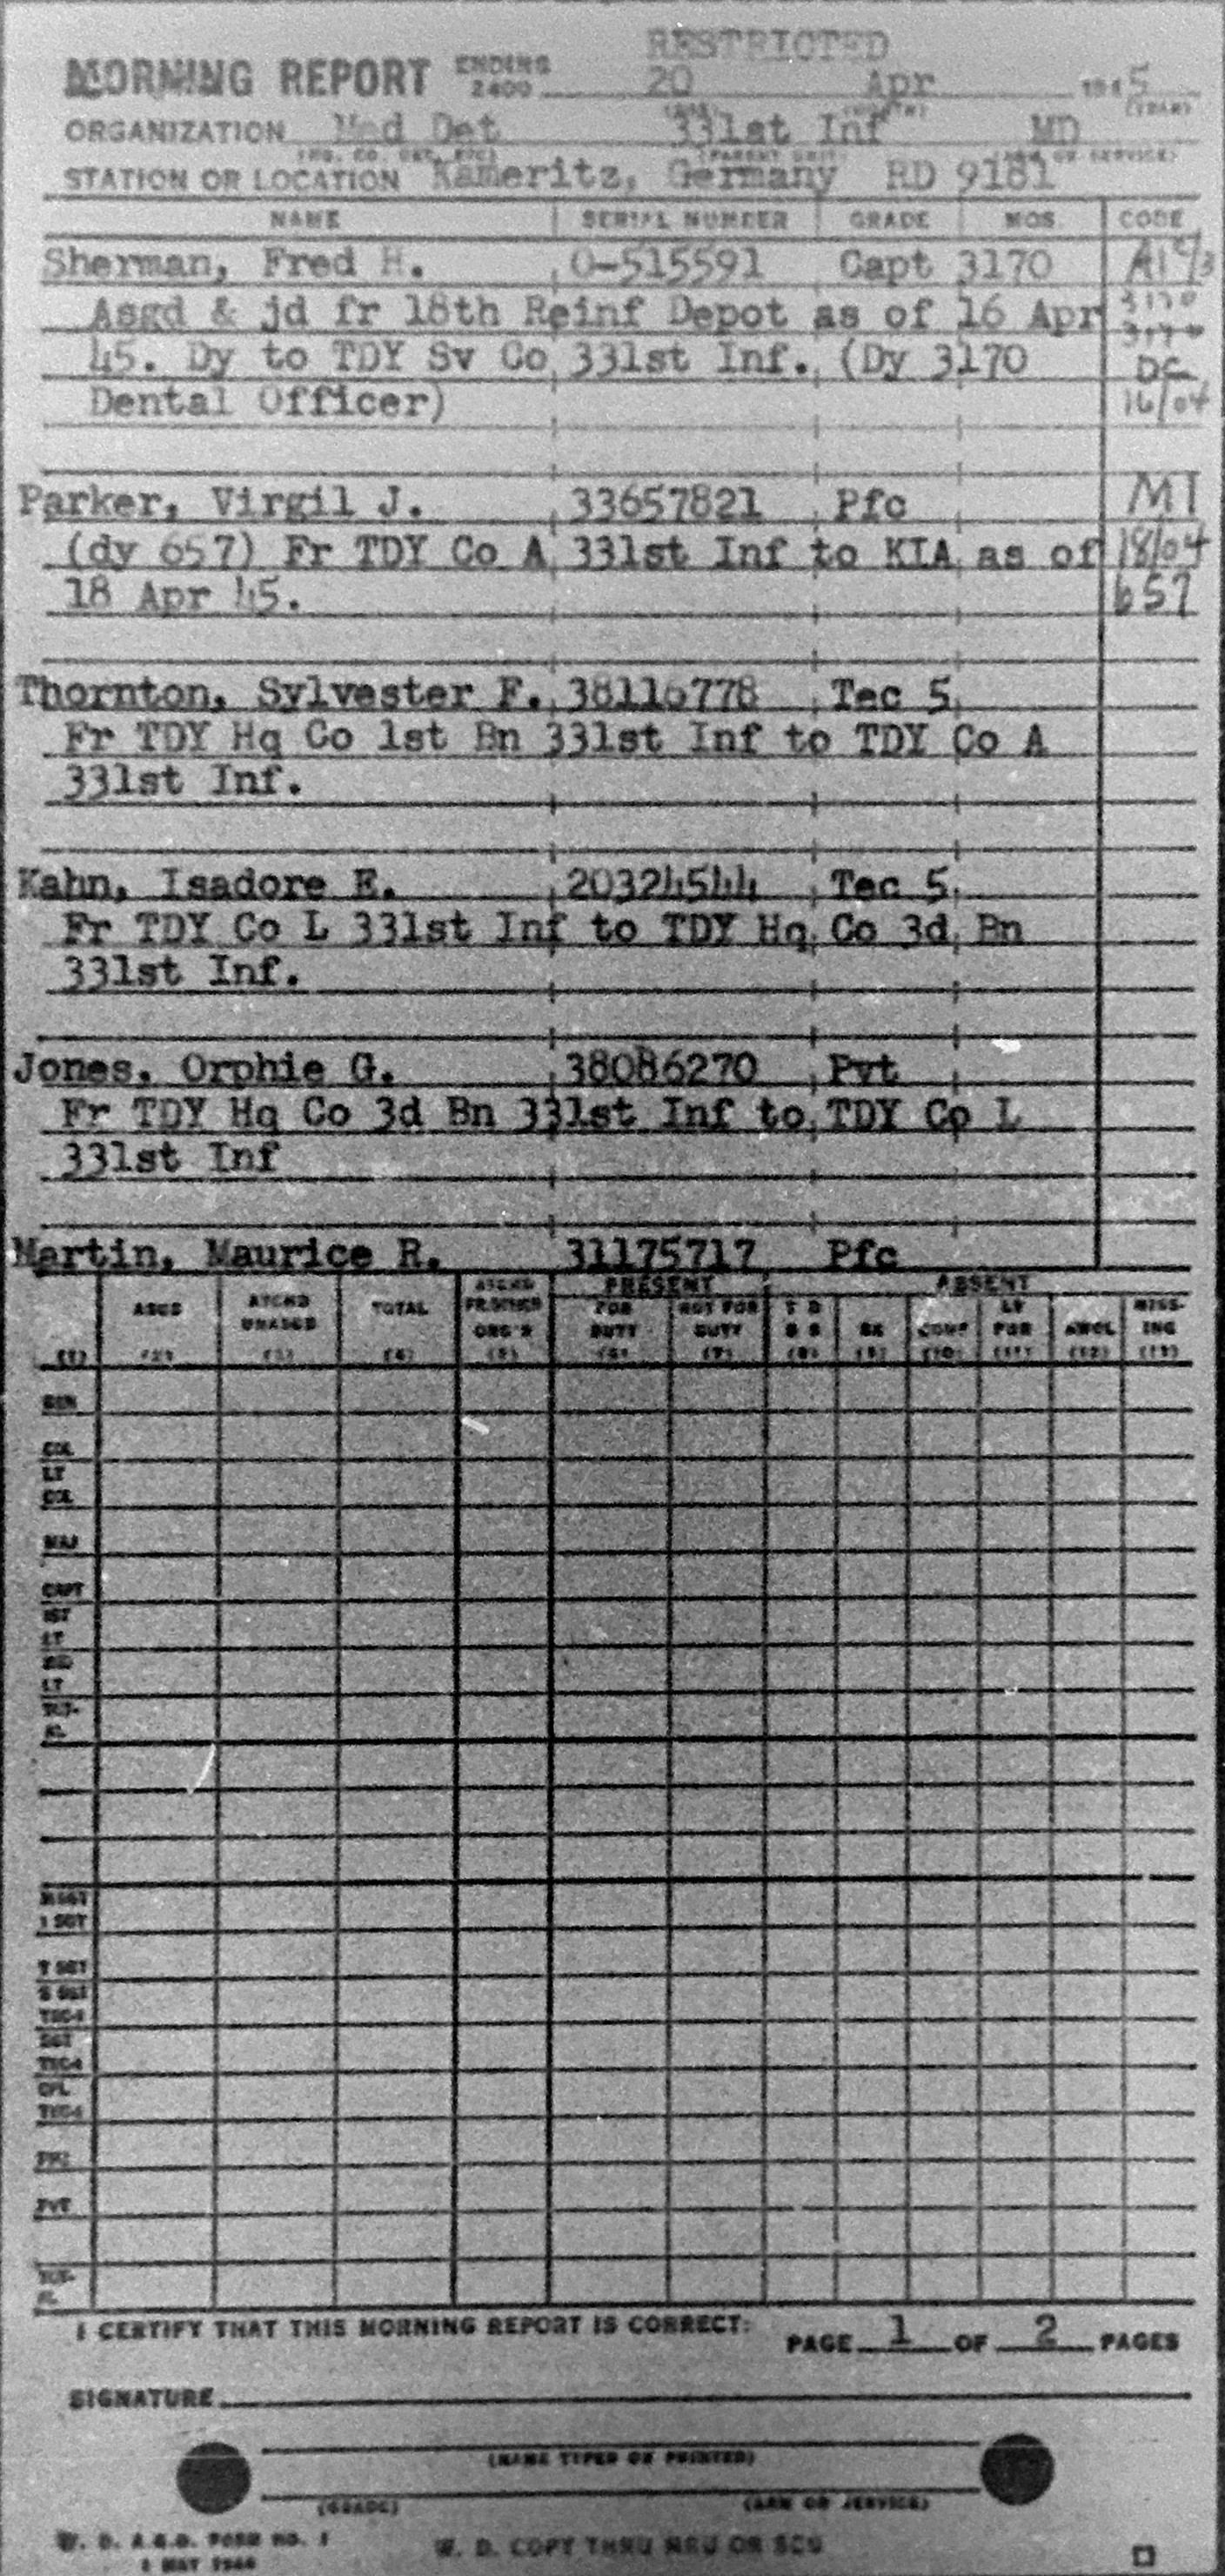 RESTRICTED
MORNING REPORT ENDING 2400 20 Apr 1945
(YEAR)
ORGANIZATION Med Det 331st Inf MD
STATION OR LOCATION Kameritz, Germany RD 9181
NAME SERIAL NUMBER GRADE MOS CODE
Sherman, Fred H. O-515591 Capt 3170
Asgd & jd fr 18th Reinf Depot as of 16 Apr 3170
45. Dy to TDY Sv Co 331st Inf. (Dy 3170 DC
Dental Officer) 16/04
Parker, Virgil J. 33657821 Pfc MI
(dy 657) Fr TDY Co A 331st Inf to KIA as of 18/04
18 Apr 45. 657
Thornton, Sylvester F. 38116778 Tec 5
Fr TDY Hq Co 1st Bn 331st Inf to TDY Co A
331st Inf.
Kahn, Isadore E. 20324544 Tec 5
Fr TDY Co L 331st Inf to TDY Hq Co 3d Bn
331st Inf.
Jones, Orphie G. 38086270 Pvt
Fr TDY Hq Co 3d Bn 331st Inf to TDY Co L
331st Inf
Martin, Maurice R. 31175717 Pfc
PRESENT ABSENT
ASGD ATCHD UNASGD TOTAL ATCHD FR OTHER ORG'S FOR DUTY NOT FOR DUTY T D S S SK CONF LV FUR AWOL MISS-ING
(1) (2) (3) (4) (5) (6) (7) (8) (9) (10) (11) (12) (13)
GEN
COL
LT
COL
MAJ
CAPT
1ST
LT
2D
LT
M SGT
1 SGT
T SGT
S SGT
TEC-3
SGT
TEC-4
CPL
PFC
PVT
I CERTIFY THAT THIS MORNING REPORT IS CORRECT:
PAGE 1 OF 2 PAGES
SIGNATURE
(NAME TYPED OR PRINTED)
(GRADE) (ARM OR SERVICE)
W. D. A.G.O. FORM NO. 1
1 MAY 1944
W. D. COPY THRU MRU OR SCU